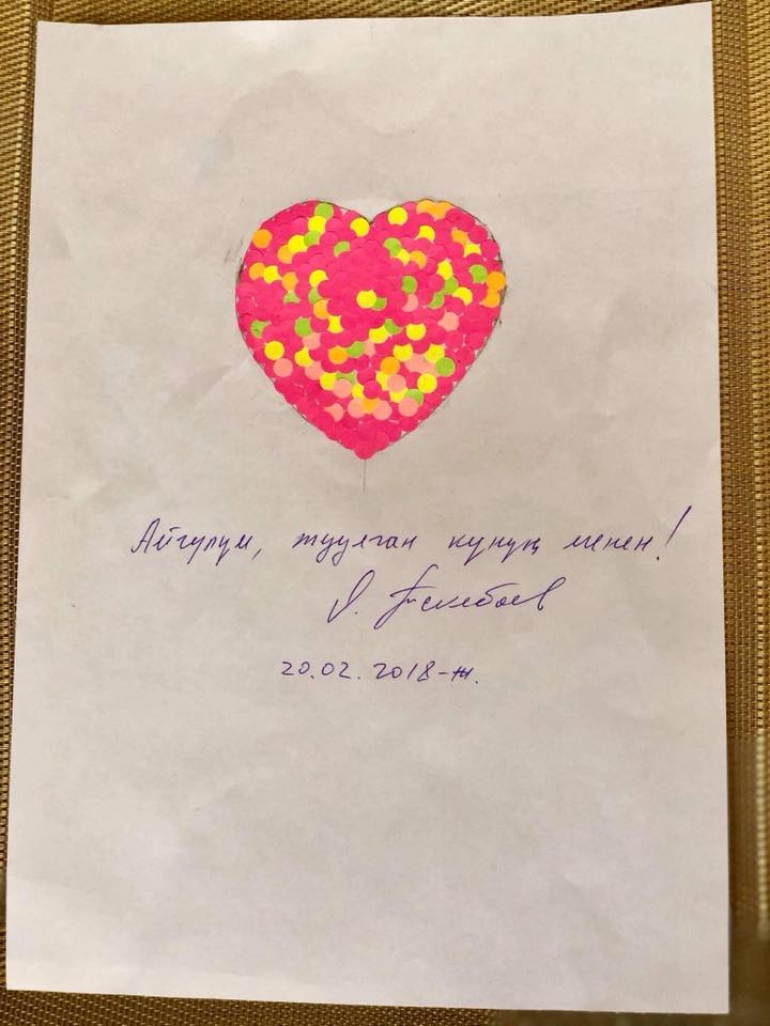 Айгулум, туулган күнүң менен!
О. Текебаев
20.02.2018-ж.